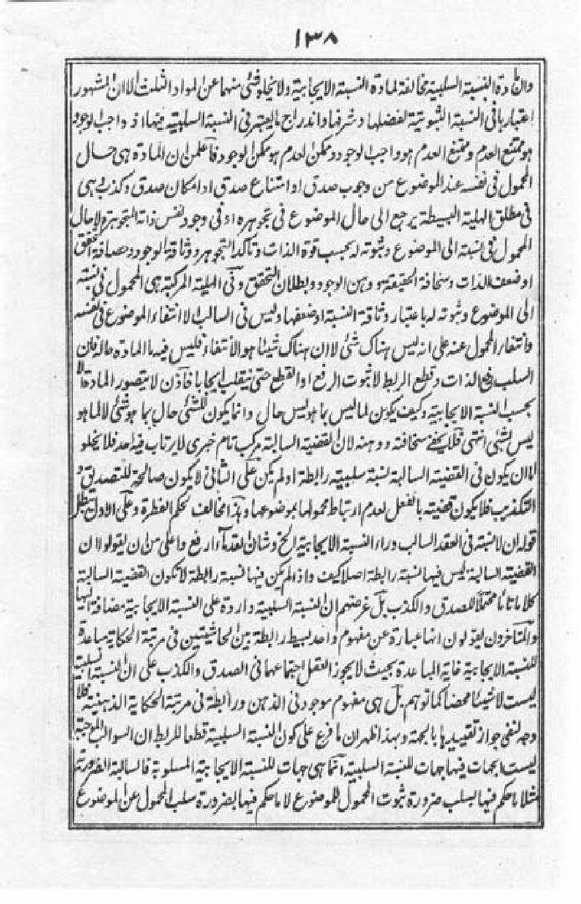 ١٣٨
وان مادة النسبة السلبية مخالفة لمادة النسبة الايجابية ولا يخلو شئ منهما عن المواد الثلث الا ان المشهور
اعتبارها فى النسبة الثبوتية لفضلها وشرفها واندراج ما يعتبر فى النسبة السلبية فيها اذ واجب الوجود
هو ممتنع العدم وممتنع العدم هو واجب الوجود وممكن العدم هو ممكن الوجود فاعلمن ان المادة هى حال
المحمول فى نفسه عند الموضوع من وجوب صدق او امتناع صدق او امكان صدق وكذب هى
فى مطلق الهلية البسيطة يرجع الى حال الموضوع فى تجوهره او فى وجود نفس ذاته المتجوهرة ولا حال
المحمول فى نسبة الى الموضوع وثبوته له بحسب قوة الذات وتأكد التجوهر ووثاقة الوجود وحصافة التحقق
او ضعف الذات وسخافة الحقيقة ووهن الوجود وبطلان التحقق وفى الهلية المركبة هى المحمول فى نسبته
الى الموضوع وثبوته له باعتبار وثاقة النسبة او ضعفها وليس فى السالب الا انتفاء الموضوع فى نفسه
وانتفاء المحمول عنه على انه ليس هناك شئ لا ان هناك شيئا هو الانتفاء فليس فيه المادة حال فان
السلب رفع الذات وقطع الربط لا ثبوت الرفع او القطع حتى ينقلب ايجابا فاذن لا يتصور المادة الا
بحسب النسبة الايجابية وكيف يكون لما ليس بما هو ليس حال وانما يكون للشئ حال بما هو شئ لا لما هو
ليس بشئ انتهى فلا يخفى سخافته ووهنه لان القضية السالبة مركب تام خبرى لا يرتاب فيه احد فلا يخلو
اما ان يكون فى القضية السالبة نسبة سلبية رابطة او لم يكن على الثانى لا يكون صالحة للتصديق و
التكذيب فلا يكون قضية بالفعل لعدم ارتباط محمولها بموضوعها وهذا مخالف لحكم الفطرة وعلى الاول يبطل
قوله ان لا نسبة فى العقد السالب وراء النسبة الايجابية الخ وشان القدماء ارفع واعلى من ان يقولوا ان
القضية السالبة ليس فيها نسبة رابطة اصلا كيف واذا لم يكن فيها نسبة رابطة لا تكون القضية السالبة
كلاما تاما محتملا للصدق والكذب بل غرضهم ان النسبة السلبية واردة على النسبة الايجابية مضافة اليها
والمتاخرون يقولون انها عبارة عن مفهوم واحد بسيط رابطة بين الحاشيتين فى مرتبة الحكاية مباعدة
للنسبة الايجابية غاية المباعدة بحيث لا يجوز العقل اجتماعهما فى الصدق والكذب على ان النسبة السلبية
ليست لا شيئا محضا كما توهم بل هى مفهوم موجود فى الذهن ورابطة فى مرتبة الحكاية الذهنية فلا
وجه لنفى جواز تقييدها بالجهة وبهذا ظهر ان ما فرع على كون النسبة السلبية قطعا للربط ان السوالب الموجهة
ليست الجهات فيها جهات للنسبة السلبية انما هى جهات للنسبة الايجابية المسلوبة فالسالبة الضرورية
مثلا ما حكم فيها بسلب ضرورة ثبوت المحمول للموضوع لا ما حكم فيها بضرورة سلب المحمول عن الموضوع